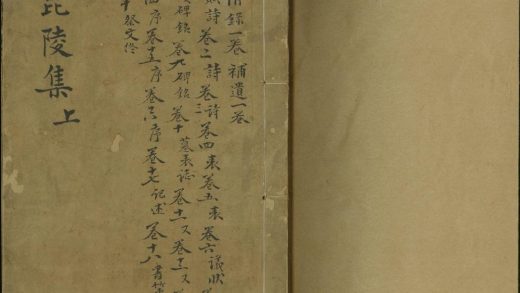 錄一卷 補遺一卷
詩 卷二詩 卷三詩 卷四表 卷五表 卷六議狀
碑銘 卷九碑銘 卷十墓表誌 卷十一又 卷十二又
四序 卷十五序 卷十六序 卷十七記述 卷十八書
十祭文
毘陵集 上